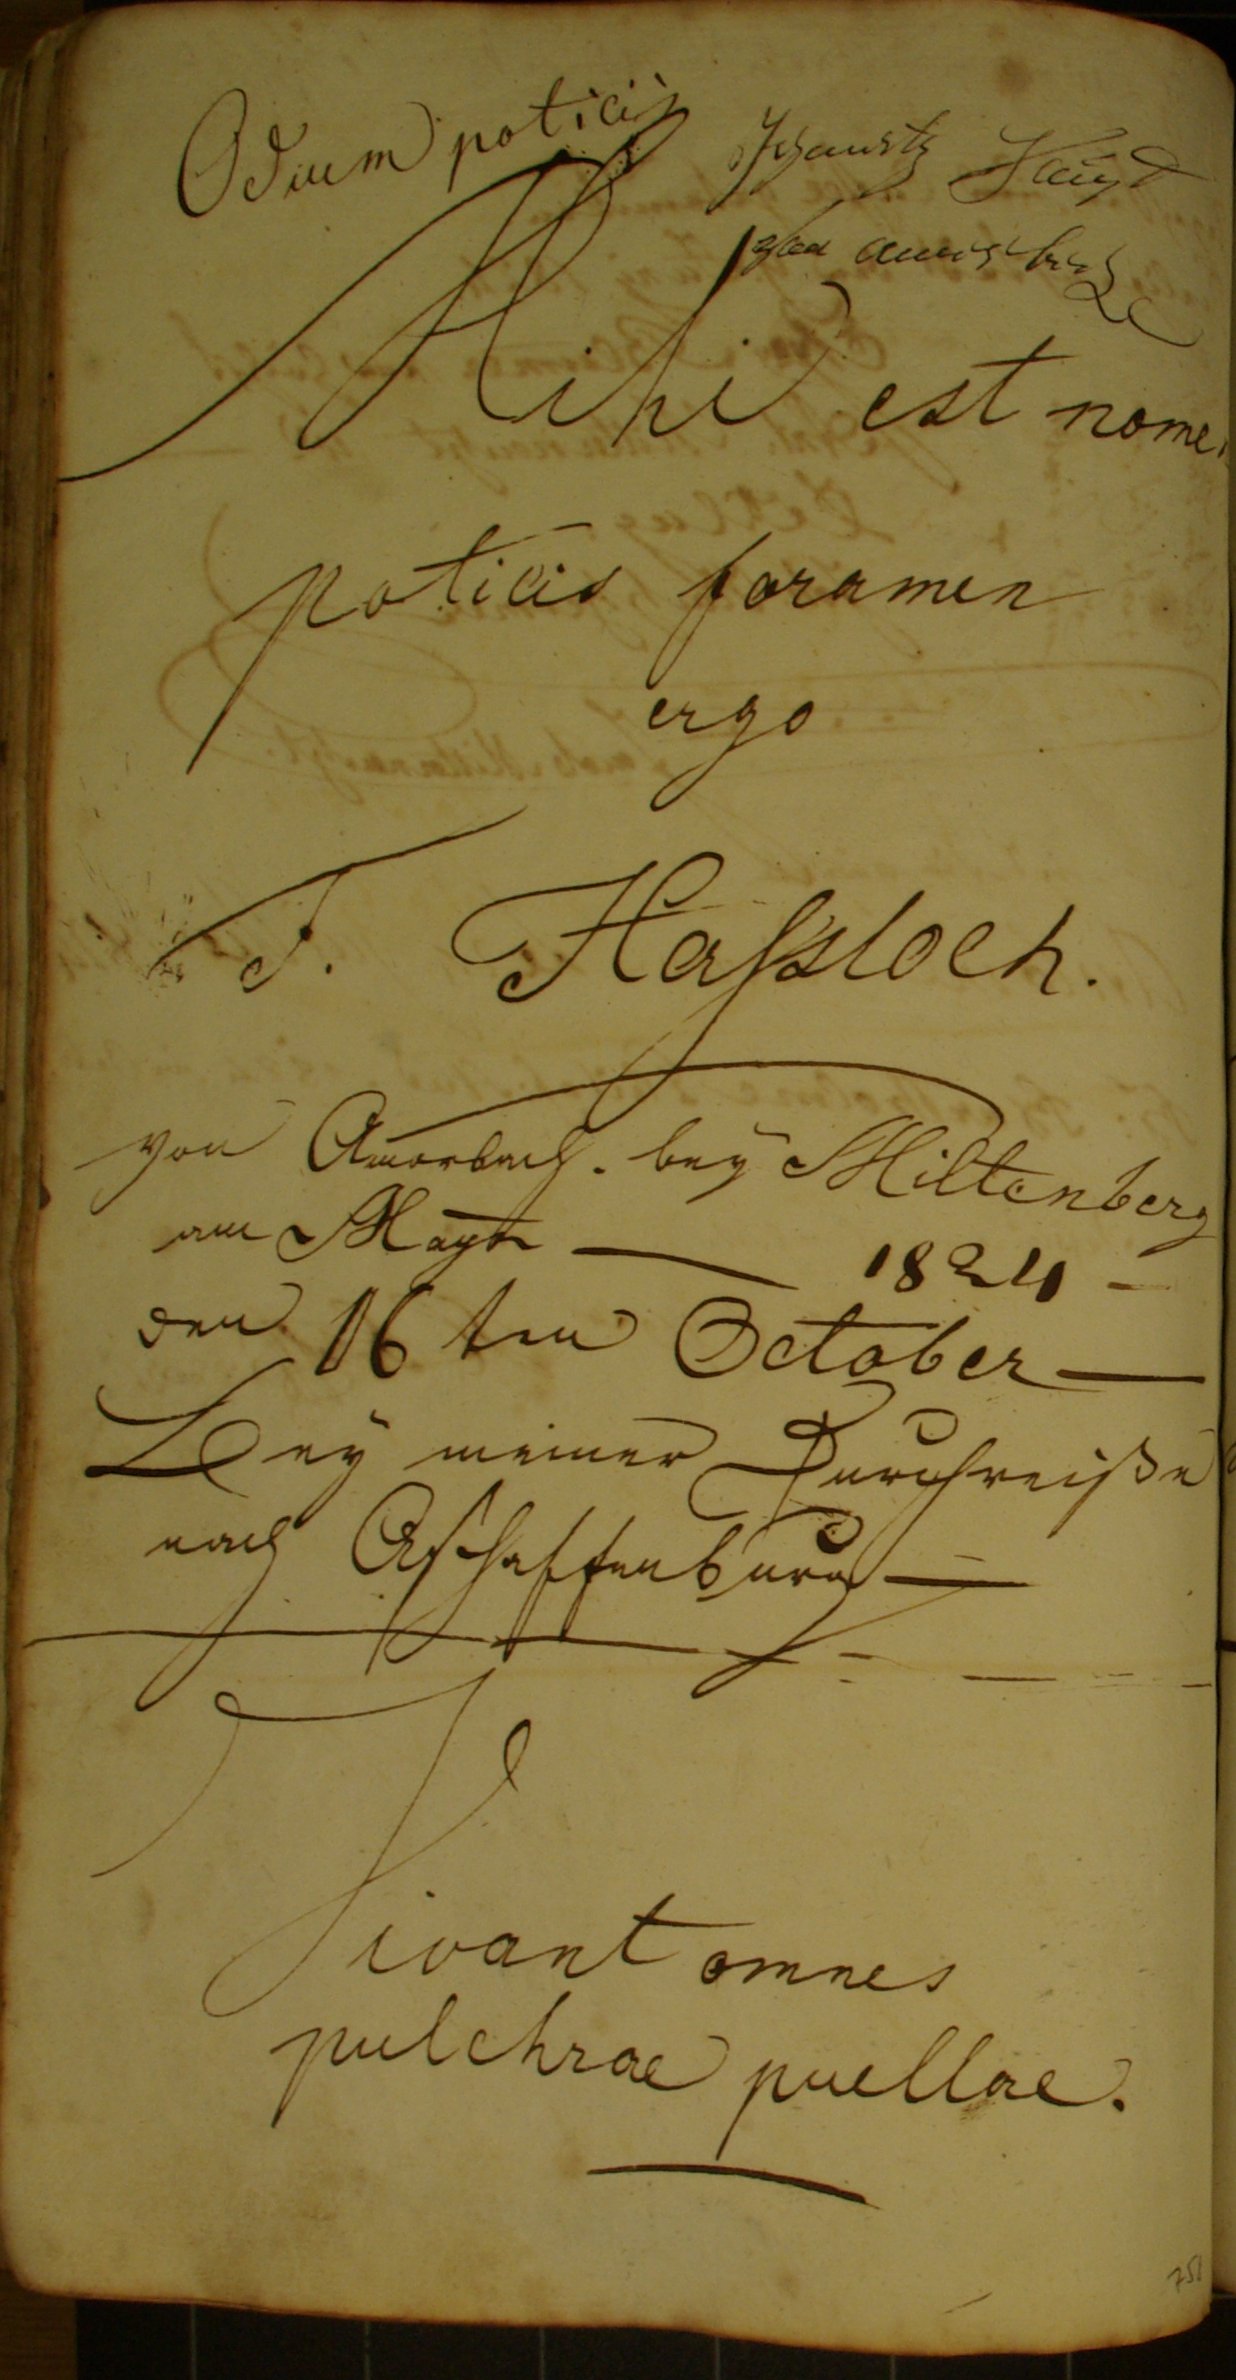 Odium poticis
Mihi est nomen
poticis foramen
ergo
F. Haſsloch.
von Amorbach. bey Miltenberg
am Mayn — 1824 —
den 16ten October —
Bey meiner Durchreiße
nach Aschaffenburg —
Vivant omnes
pulchrae puellae.
751